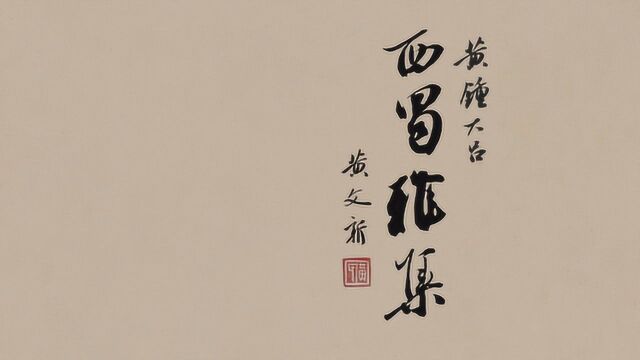 黄鍾大吕
西蜀雅集
黄文新